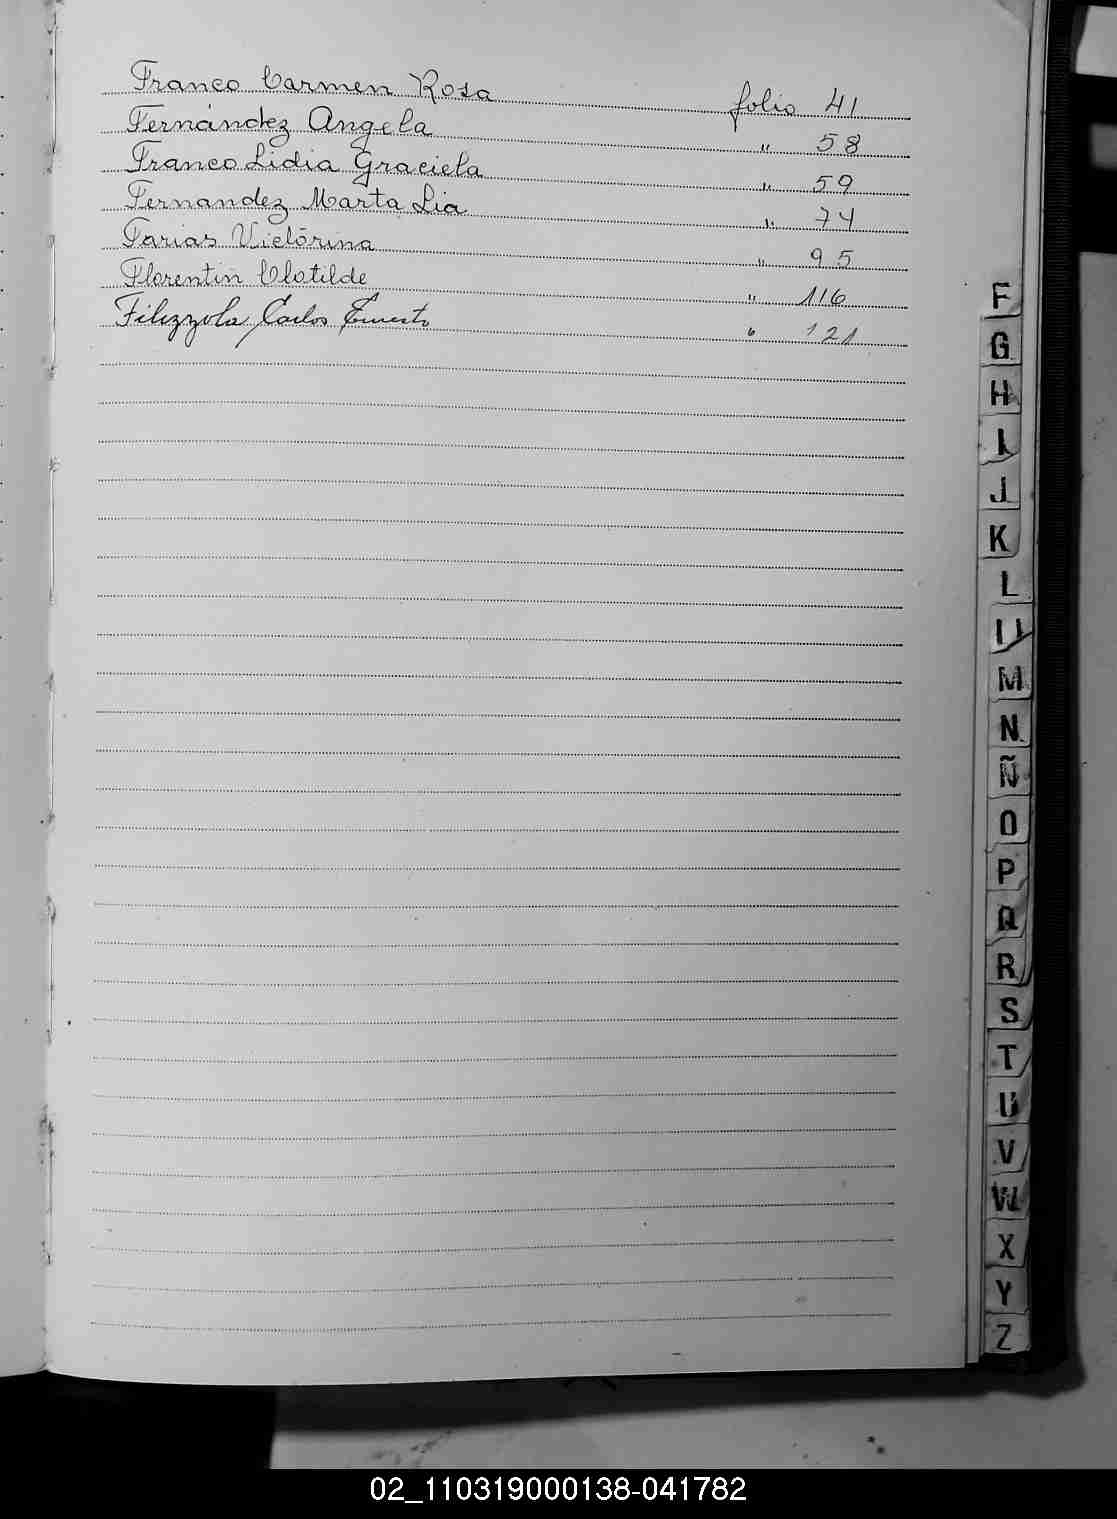 Franco Carmen Rosa folio 41
Fernández Angela " 58
Franco Lidia Graciela " 59
Fernandez Marta Lia " 74
Farias Victorina " 95
Florentin Clotilde " 116
Filizzola Carlos Ernesto " 121
F
G
H
I
J
K
L
LL
M
N
Ñ
O
P
Q
R
S
T
U
V
W
X
Y
Z
02_110319000138-041782